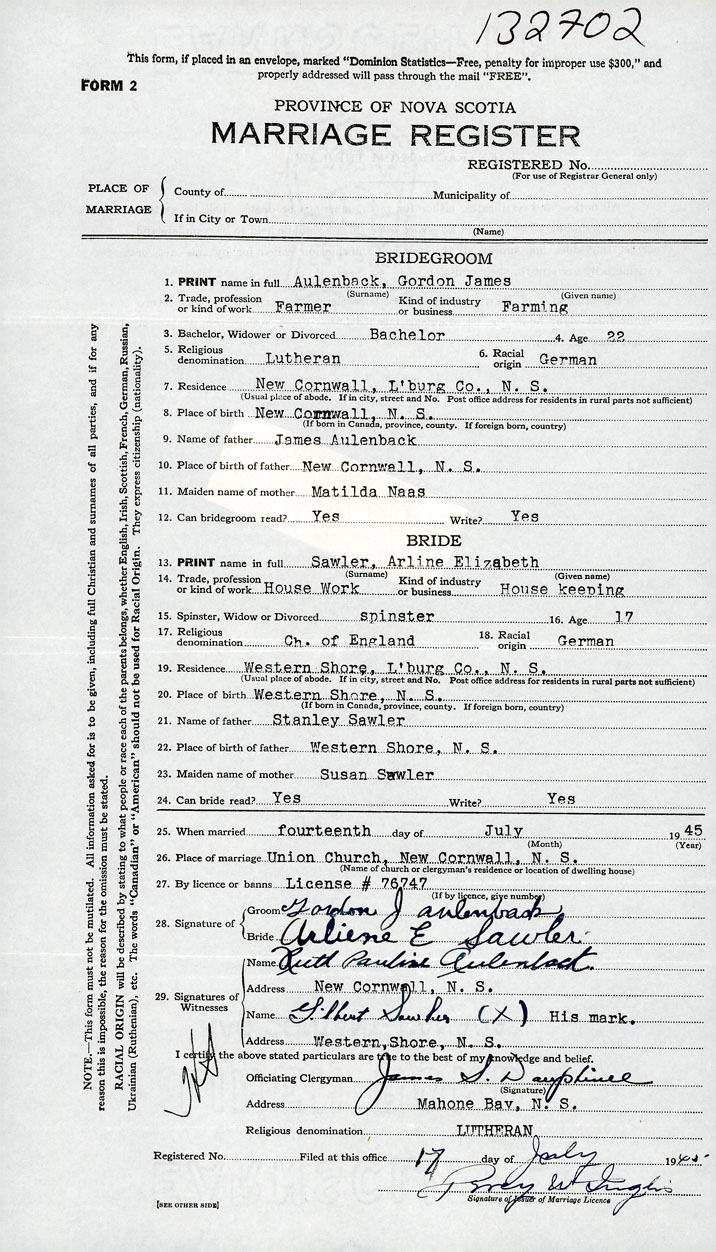 132702
This form, if placed in an envelope, marked "Dominion Statistics—Free, penalty for improper use $300," and
properly addressed will pass through the mail "FREE".
FORM 2
PROVINCE OF NOVA SCOTIA
MARRIAGE REGISTER
REGISTERED No.
(For use of Registrar General only)
PLACE OF MARRIAGE
County of Municipality of
If in City or Town
(Name)
BRIDEGROOM
1. PRINT name in full Aulenback, Gordon James
(Surname) (Given name)
2. Trade, profession or kind of work Farmer Kind of industry or business Farming
3. Bachelor, Widower or Divorced Bachelor 4. Age 22
5. Religious denomination Lutheran 6. Racial origin German
7. Residence New Cornwall, L'burg Co., N. S.
(Usual place of abode. If in city, street and No. Post office address for residents in rural parts not sufficient)
8. Place of birth New Cornwall, N. S.
(If born in Canada, province, county. If foreign born, country)
9. Name of father James Aulenback
10. Place of birth of father New Cornwall, N. S.
11. Maiden name of mother Matilda Naas
12. Can bridegroom read? Yes Write? Yes
BRIDE
13. PRINT name in full Sawler, Arline Elizabeth
(Surname) (Given name)
14. Trade, profession or kind of work House Work Kind of industry or business House keeping
15. Spinster, Widow or Divorced spinster 16. Age 17
17. Religious denomination Ch. of England 18. Racial origin German
19. Residence Western Shore, L'burg Co., N. S.
(Usual place of abode. If in city, street and No. Post office address for residents in rural parts not sufficient)
20. Place of birth Western Shore, N. S.
(If born in Canada, province, county. If foreign born, country)
21. Name of father Stanley Sawler
22. Place of birth of father Western Shore, N. S.
23. Maiden name of mother Susan Sawler
24. Can bride read? Yes Write? Yes
25. When married fourteenth day of July 1945
(Month) (Year)
26. Place of marriage Union Church, New Cornwall, N. S.
(Name of church or clergyman's residence or location of dwelling house)
27. By licence or banns License # 76747
(If by licence, give number)
28. Signature of
Groom Gordon J Aulenback
Bride Arliene E Sawler
29. Signatures of Witnesses
Name Ruth Pauline Aulenback
Address New Cornwall, N. S.
Name Gilbert Sawler (X) His mark.
Address Western Shore, N. S.
I certify the above stated particulars are true to the best of my knowledge and belief.
Officiating Clergyman James S. Dauphinee
(Signature)
Address Mahone Bay, N. S.
Religious denomination LUTHERAN
Registered No. Filed at this office 17 day of July 1945
Percy W Inglis
Signature of Issuer of Marriage Licence
[SEE OTHER SIDE]
NOTE.—This form must not be mutilated. All information asked for is to be given, including full Christian and surnames of all parties, and if for any
reason this is impossible, the reason for the omission must be stated.
RACIAL ORIGIN will be described by stating to what people or race each of the parents belongs, whether English, Irish, Scottish, French, German, Russian,
Ukrainian (Ruthenian), etc. The words "Canadian" or "American" should not be used for Racial Origin. They express citizenship (nationality).